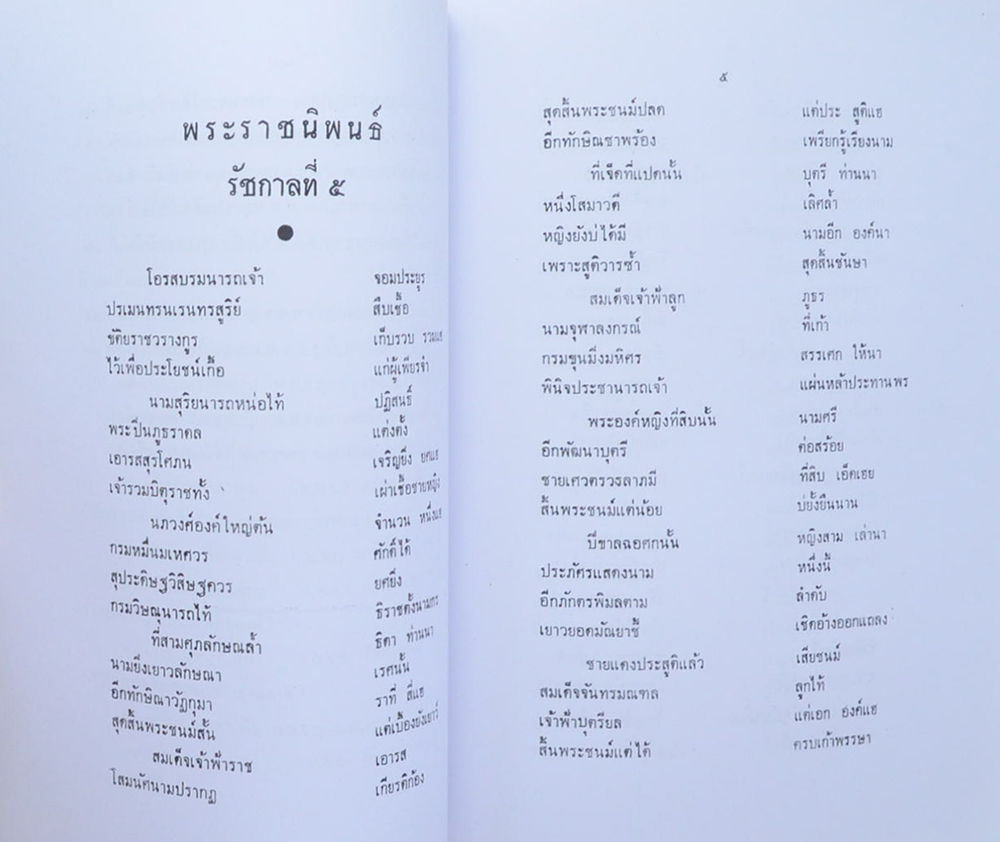 พระราชนิพนธ์
รัชกาลที่ ๕
โอรสบรมนารถเจ้า จอมประยุร
ปรเมนทรนเรนทรสูริย์ สืบเชื้อ
ขัติยราชวรางกูร เก็บรวบ รวมแฮ
ไว้เพื่อประโยชน์เกื้อ แก่ผู้เพียรจำ
นามสุริยนารถหน่อไท้ ปฏิสนธิ์
พระปิ่นภูธราดล แต่งตั้ง
เอารสสุรโศภน เจริญยิ่ง ยศแฮ
เจ้ารวมบิตุราชทั้ง เผ่าเชื้อชายหญิง
นภวงศ์องค์ใหญ่ต้น จำนวน หนึ่งแฮ
กรมหมื่นมเหศวร ศักดิ์ได้
สุประดิษฐวิสิษฐควร ยศยิ่ง
กรมวิษณุนารถไท้ ธิราชตั้งนามกร
ที่สามศุภลักษณล้ำ ธิดา ท่านนา
นามยิ่งเยาวลักษณา เรศนั้น
อีกทักษิณาวัฏกุมา ราที่ สี่แฮ
สุดสิ้นพระชนม์สั้น แต่เบื้องยังเยาว์
สมเด็จเจ้าฟ้าราช เอารส
โสมนัศนามปรากฏ เกียรติก้อง
๕
สุดสิ้นพระชนม์ปลด แต่ประ สูติแฮ
อีกทักษิณชาพร้อง เพรียกรู้เรียงนาม
ที่เจ็ดที่แปดนั้น บุตรี ท่านนา
หนึ่งโสมาวดี เลิศล้ำ
หญิงยังบ่ได้มี นามอีก องค์นา
เพราะสูติวารซ้ำ สุดสิ้นชันษา
สมเด็จเจ้าฟ้าลูก ภูธร
นามจุฬาลงกรณ์ ที่เก้า
กรมขุนมิ่งมหิศร สรรเศก ให้นา
พินิจประชานารถเจ้า แผ่นหล้าประทานพร
พระองค์หญิงที่สิบนั้น นามศรี
อีกพัฒนาบุตรี ต่อสร้อย
ชายเศวตรวรลาภมี ที่สิบ เอ็ดเฮย
สิ้นพระชนม์แต่น้อย บ่ยั้งยืนนาน
ปีขาลฉอศกนั้น หญิงสาม เล่านา
ประภัศรแสดงนาม หนึ่งนี้
อีกภักตรพิมลตาม ลำดับ
เยาวยอดมัณยาชี้ เชิดอ้างออกแถลง
ชายแดงประสูติแล้ว เสียชนม์
สมเด็จจันทรมณฑล ลูกไท้
เจ้าฟ้าบุตรียล แต่เอก องค์แฮ
สิ้นพระชนม์แต่ได้ ครบเก้าพรรษา